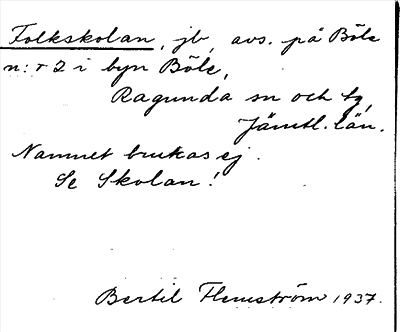 Folkskolan, jb, avs. på Böle
n:r 2 i byn Böle,
Ragunda sn och tg,
Jämtl. län.
Namnet brukas ej.
Se Skolan!
Bertil Flemström 1937.